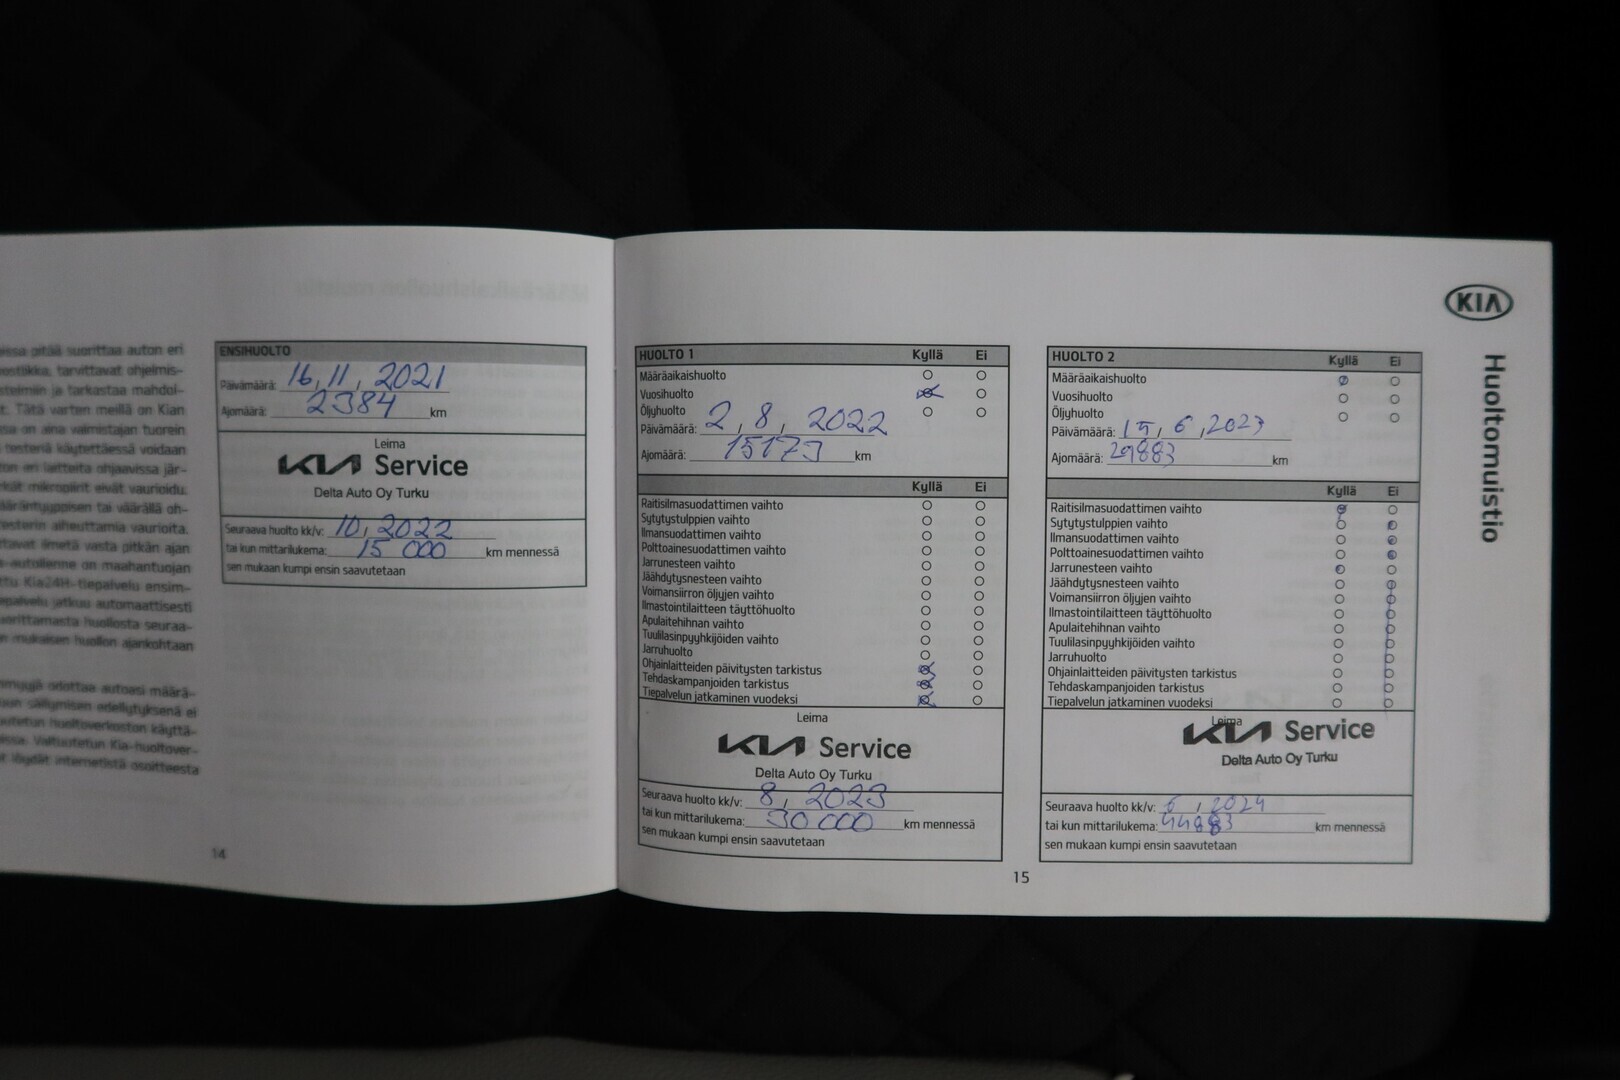 issa pitää suorittaa auton eri
tarvittavat ohjelmis-
ja tarkastaa mahdol-
Tätä varten meillä on Kian
on aina valmistajan tuorein
testeriä käytettäessä voidaan
eri laitteita ohjaavissa jär-
mikropiirit eivät vaurioidu.
tai väärällä oh-
testerin aiheuttamia vaurioita.
ilmetä vasta pitkän ajan
on maahantuojan
Kia24H-tiepalvelu ensim-
jatkuu automaattisesti
huollosta seuraa-
mukaisen huollon ajankohtaan
odottaa autoasi määrä-
säilymisen edellytyksenä ei
huoltoverkoston käyttä-
Valtuutetun Kia-huoltover-
löydät internetistä osoitteesta
14
ENSIHUOLTO
Päivämäärä: 16, 11, 2021
Ajomäärä: 2384 km
Leima
KIA Service
Delta Auto Oy Turku
Seuraava huolto kk/v: 10, 2022
tai kun mittarilukema: 15 000 km mennessä
sen mukaan kumpi ensin saavutetaan
HUOLTO 1 Kyllä Ei
Määräaikaishuolto
Vuosihuolto
Öljyhuolto
Päivämäärä: 2, 8, 2022
Ajomäärä: 15173 km
Kyllä Ei
Raitisilmasuodattimen vaihto
Sytytystulppien vaihto
Ilmansuodattimen vaihto
Polttoainesuodattimen vaihto
Jarrunesteen vaihto
Jäähdytysnesteen vaihto
Voimansiirron öljyjen vaihto
Ilmastointilaitteen täyttöhuolto
Apulaitehihnan vaihto
Tuulilasinpyyhkijöiden vaihto
Jarruhuolto
Ohjainlaitteiden päivitysten tarkistus
Tehdaskampanjoiden tarkistus
Tiepalvelun jatkaminen vuodeksi
Leima
KIA Service
Delta Auto Oy Turku
Seuraava huolto kk/v: 8, 2023
tai kun mittarilukema: 30 000 km mennessä
sen mukaan kumpi ensin saavutetaan
HUOLTO 2 Kyllä Ei
Määräaikaishuolto
Vuosihuolto
Öljyhuolto
Päivämäärä: 15, 6, 2023
Ajomäärä: 29883 km
Kyllä Ei
Raitisilmasuodattimen vaihto
Sytytystulppien vaihto
Ilmansuodattimen vaihto
Polttoainesuodattimen vaihto
Jarrunesteen vaihto
Jäähdytysnesteen vaihto
Voimansiirron öljyjen vaihto
Ilmastointilaitteen täyttöhuolto
Apulaitehihnan vaihto
Tuulilasinpyyhkijöiden vaihto
Jarruhuolto
Ohjainlaitteiden päivitysten tarkistus
Tehdaskampanjoiden tarkistus
Tiepalvelun jatkaminen vuodeksi
Leima
KIA Service
Delta Auto Oy Turku
Seuraava huolto kk/v: 6, 2024
tai kun mittarilukema: 44883 km mennessä
sen mukaan kumpi ensin saavutetaan
15
KIA
Huoltomuistio